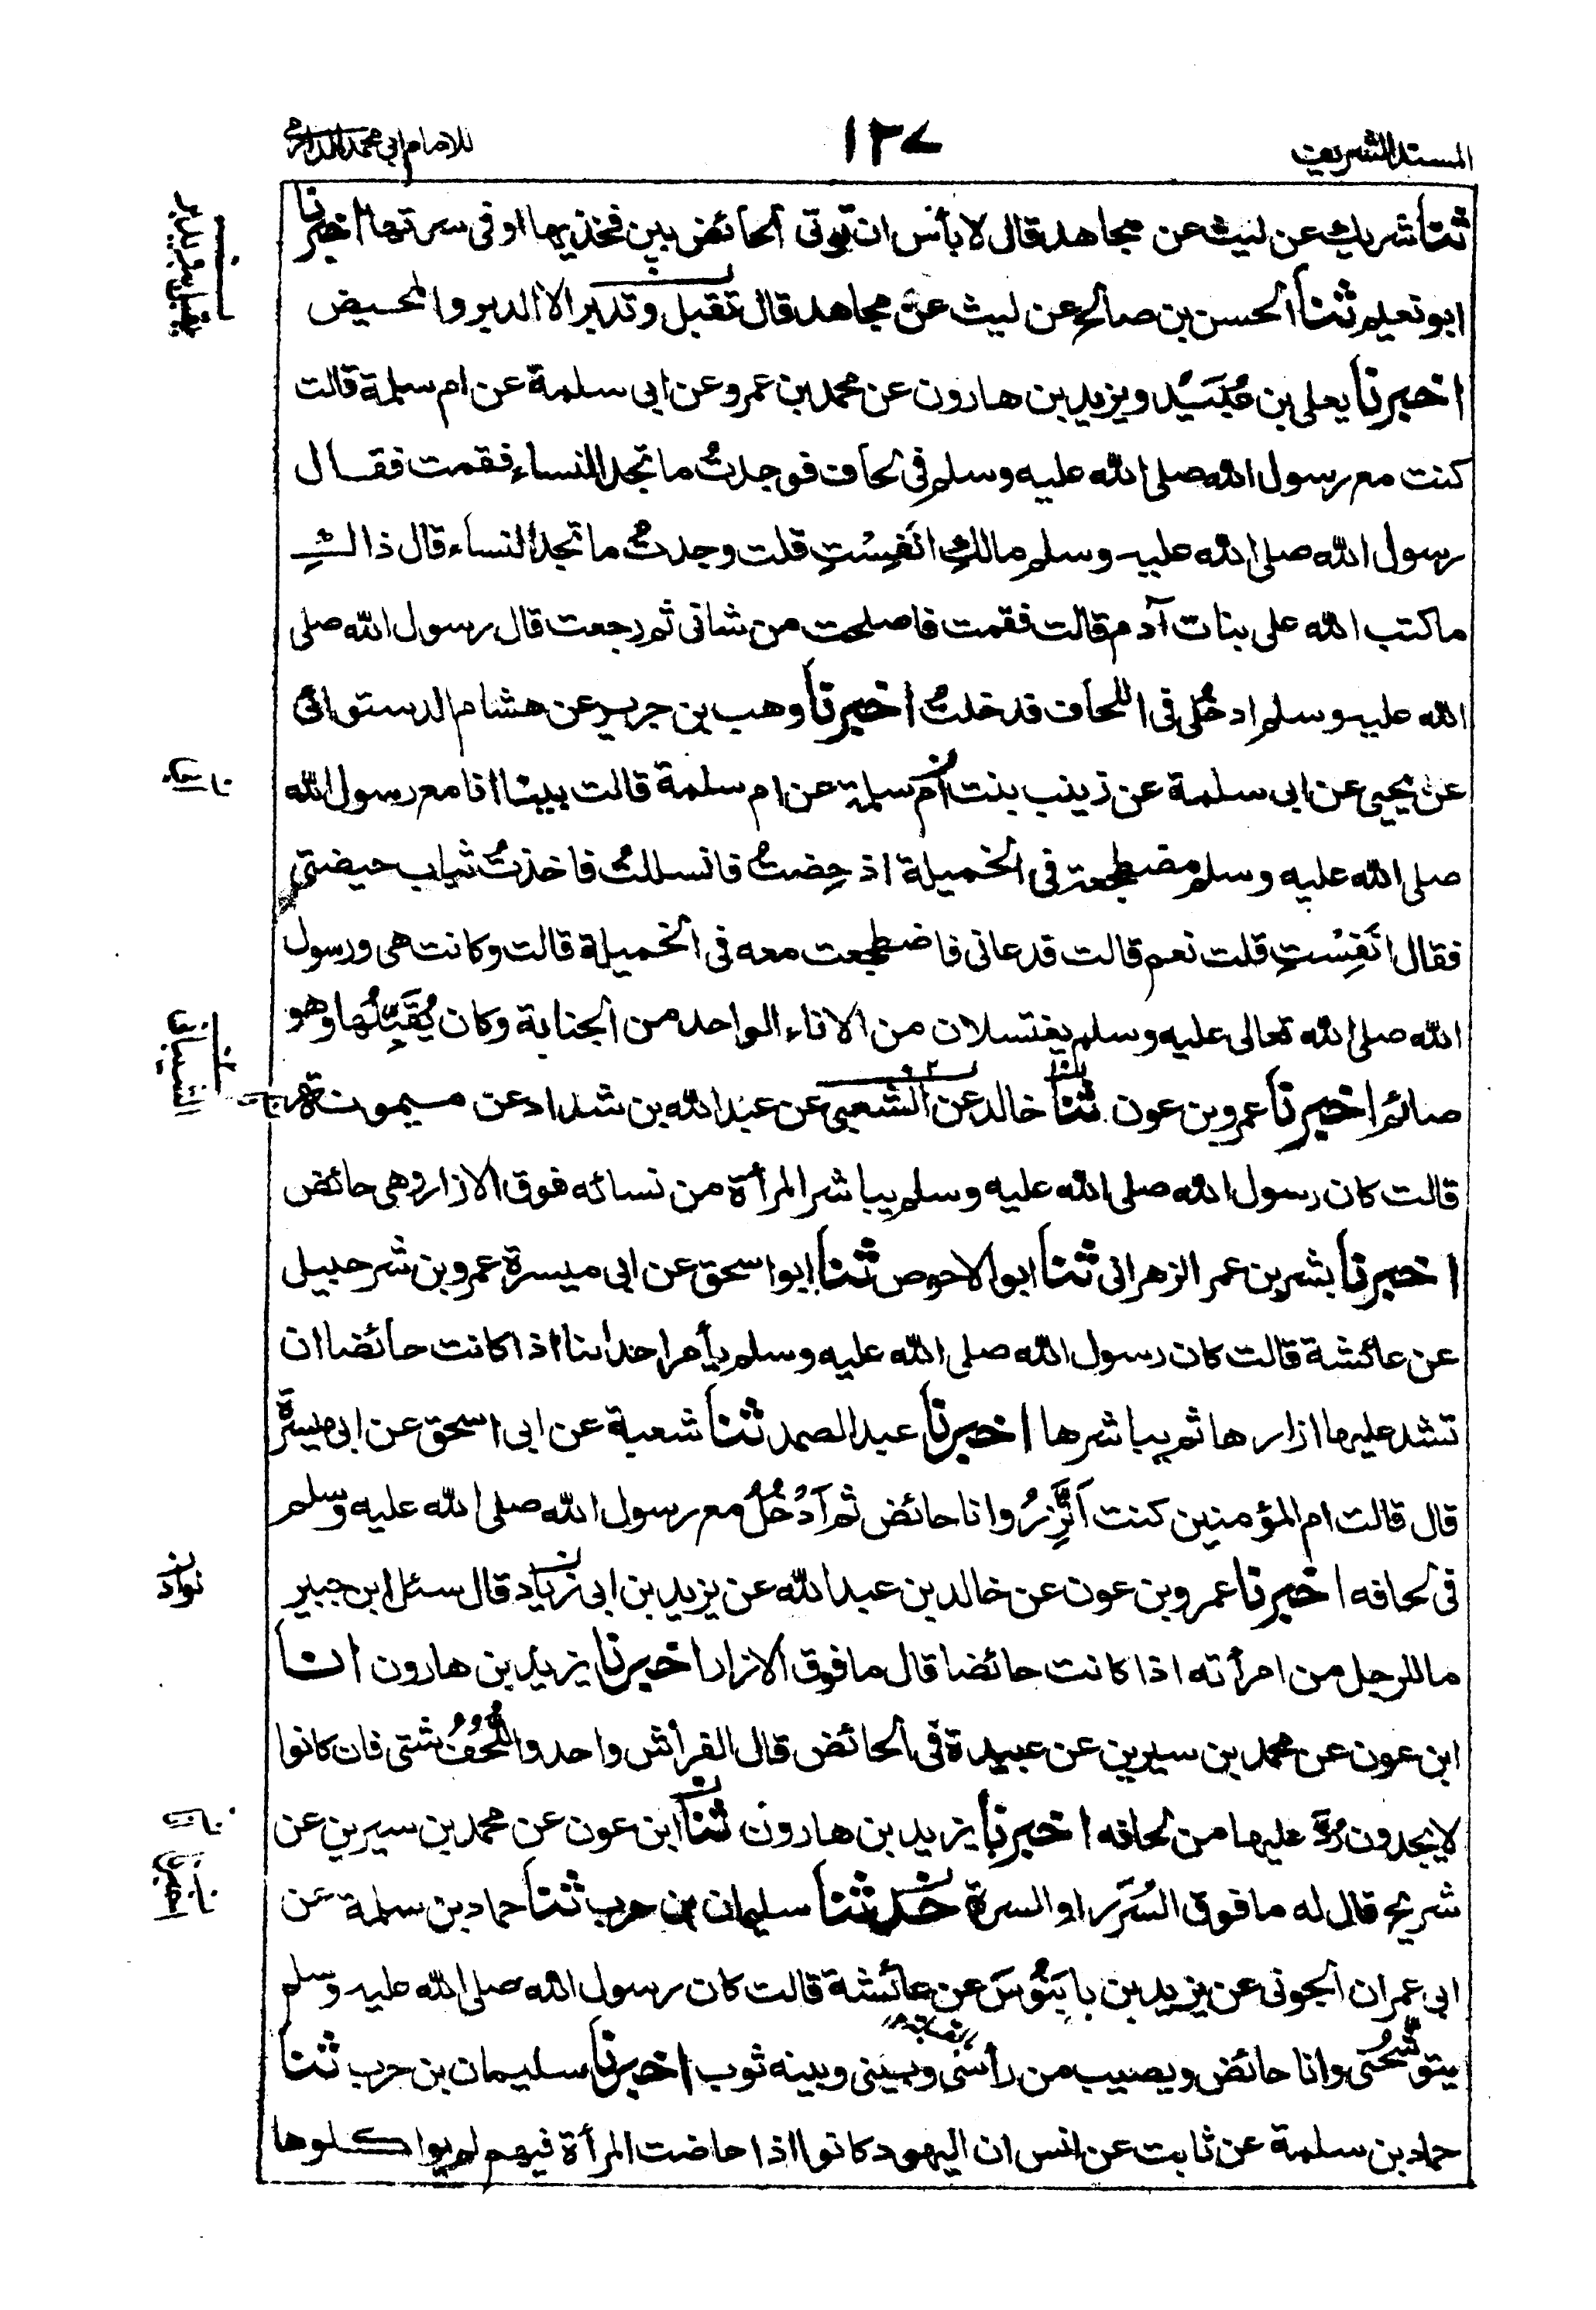 المسند الشريف
١٢٧
للامام ابي محمد الدارمي
ثنا شريك عن ليث عن مجاهد قال لا بأس ان توتى الحائض بين فخذيها او في سرتها اخبرنا
ابو نعيم ثنا الحسن بن صالح عن ليث عن مجاهد قال تقبل وتدبر الا الدبر والمحيض
اخبرنا يعلى بن عُبَيْد ويزيد بن هارون عن محمد بن عمرو عن ابى سلمة عن ام سلمة قالت
كنت مع رسول الله صلى الله عليه وسلم في لحاف فوجدتُ ما تجد النساء فقمت فقال
رسول الله صلى الله عليه وسلم مالكِ انَفِسْتِ قلت وجدتُ ما تجد النساء قال ذالكِ
ما كتب الله على بنات آدم قالت فقمت فاصلحت من شانى ثم رجعت قال رسول الله صلى
الله عليه وسلم ادخُلى فى اللحاف فدخلتُ اخبرنا وهب بن جرير عن هشام الدستوائى
عن يحيى عن ابى سلمة عن زينب بنت ام سلمة عن ام سلمة قالت بينا انا مع رسول الله
صلى الله عليه وسلم مضطجعة فى الخميلة اذ حِضتُ فانسللتُ فاخذتُ ثياب حيضتى
فقال انَفِسْتِ قلت نعم قالت فدعانى فاضطجعت معه فى الخميلة قالت وكانت هى ورسول
الله صلى الله تعالى عليه وسلم يغتسلان من الاناء الواحد من الجنابة وكان يُقَبِّلُها وهو
صائم اخبرنا عمرو بن عون ثنا خالد عن الشعبى عن عبد الله بن شداد عن ميمونة
قالت كان رسول الله صلى الله عليه وسلم يباشر المرأة من نسائه فوق الازار وهى حائض
اخبرنا بشر بن عمر الزهرانى ثنا ابو الاحوص ثنا ابو اسحق عن ابى ميسرة عمرو بن شرحبيل
عن عائشة قالت كان رسول الله صلى الله عليه وسلم يأمر احدانا اذا كانت حائضا ان
تشد عليها ازارها ثم يباشرها اخبرنا عبد الصمد ثنا شعبة عن ابى اسحق عن ابى ميسرة
قال قالت ام المؤمنين كنت اَتَّزِرُ وانا حائض ثم اَدْخُلُ مع رسول الله صلى الله عليه وسلم
فى لحافه اخبرنا عمرو بن عون عن خالد بن عبد الله عن يزيد بن ابى زياد قال سئل ابن جبير
ما للرجل من امرأته اذا كانت حائضا قال ما فوق الازار اخبرنا يزيد بن هارون انا
ابن عون عن محمد بن سيرين عن عبيدة فى الحائض قال الفراش واحد واللُّحُفُ شتى فان كانوا
لا يجدون رُدَّ عليها من لحافه اخبرنا يزيد بن هارون ثنا ابن عون عن محمد بن سيرين عن
شريح قال له ما فوق السُرَر او السرة حدثنا سليمان بن حرب ثنا حماد بن سلمة عن
ابى عمران الجونى عن يزيد بن بابَنُوسَ عن عائشة قالت كان رسول الله صلى الله عليه وسلم
يتوشحُنى وانا حائض ويصيب من رأسى وبينى وبينه ثوب اخبرنا سليمان بن حرب ثنا
حماد بن سلمة عن ثابت عن انس ان اليهود كانوا اذا حاضت المرأة فيهم لم يواكلوها